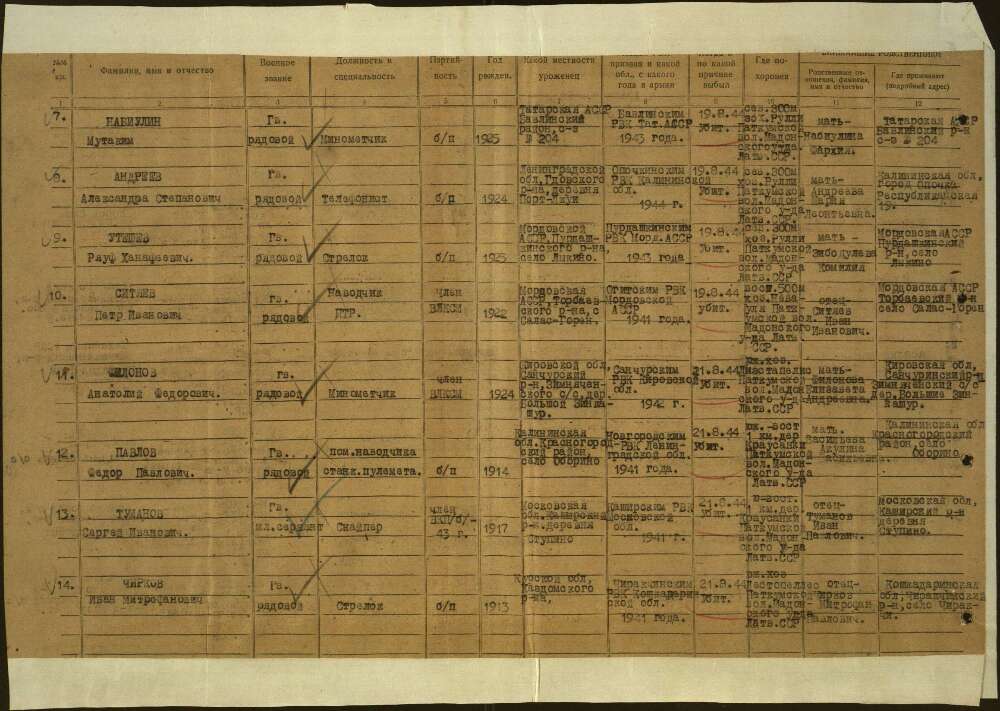 №№
Фамилия, имя и отчество
Военное
звание
Должность и
специальность
Партий-
ность
Год
рожден.
Какой местности
уроженец
призван и какой
обл., с какого
года в армии
по какой
причине
выбыл
Где по-
хоронен
Родственные от-
ношения, фамилия,
имя и отчество
Где проживают
(подробный адрес)
7.
НАБИУЛИН
Мутаким
Гв.
рядовой
Минометчик
б/п
1925
Татарская АССР
Бавлинский
район, с-з
№ 204
Бавлинским
РВК Тат.АССР
1943 года.
19.8.44
убит.
сев.800м
хох.Рулли
Паткумской
вол.Мадон-
ского уезда.
Латв.ССР.
мать-
Набиулина
Фархия.
Татарская АССР
Бавлинский р-н
с-з № 204
8.
АНДРЕЕВ
Александра Степанович
Гв.
рядовой
Телефонист
б/п
1924
Ленинградской
обл,Гдовского
р-на,деревня
Опочкинским
РВК Калининской
обл.
1944 г.
19.8.44
Убит.
сев.800м
хох.Рулли
Паткумской
вол.Мадон-
ского у-да
Латв.ССР.
мать-
Андреева
Мария
Леонтьевна.
Калининская обл,
город Опочка
Республиканская
9.
УТЕШЕВ
Рауф Ханафаевич.
Гв.
рядовой
Стрелок
б/п
1925
Мордовской
АССР,Пурдаш-
кинского р-на,
село Лыкино.
Пурдашкинским
РВК Морд.АССР
1943 года
19.8.44
Убит.
сев.800м
хов.Рулли
Паткумской
вол.Мадон-
ского у-да
Латв.ССР.
мать -
Зибодулава
Комилия
МордовскаяАССР
Пурдашкинский
р-н,село
Лыкино
10.
СИТЯЕВ
Петр Иванович
Гв.
рядовой
Наводчик
ПТР.
член
ВЛКСМ
1922
Мордовская
АССР,Торбаев-
ского р-на,с
Салас-Горен.
РВК
Мордовской
АССР
1941 года.
19.8.44
убит.
вост.500м
Латв.
ССР.
отец-
Ситяев
Иван
Иванович.
Мордовская АССР
Торбаевский р-н
село Салас-Горен
11.
ФИЛОНОВ
Анатолий Федорович.
Гв.
рядовой
Минометчик
член
ВЛКСМ
1924
Кировской обл,
Санчурский
р-н,Зимнячен-
ского с/с,дер.
Санчурским
РВК Кировской
обл.
1942 г.
21.8.44
Убит.
юж.хов.
Паткумской
вол.Мадон
ского у-да
Латв.ССР
мать-
Филонова
Елизавета
Андреевна.
Кировская обл,
Санчуринский р-н
Зимняченский с/с
дер.Большие Зин-
кашур.
12.
ПАВЛОВ
Федор Павлович.
Гв.
рядовой
пом.наводчика
станк.пулемета.
б/п
1914
Калининская
обл.Красногород-
ский район,
село Оборино
Новгородским
РВК Ленин-
градской обл.
1941 года.
21.8.44
Убит.
юж.-вост
1 км.дер.
Краусанки
Паткумской
вол.Мадон-
ского у-да
Латв.ССР
мать.
Васильева
Акулина
Калининская обл
Красногородский
район,село
Оборино.
13.
ТУМАНОВ
Сергей Иванович.
Гв.
мл.сержант
Снайпер
член
ВКП/б/-
43 г.
1917
Московская
обл.Каширский
р-н.деревня
Ступино
Каширским РВК
Московской
обл.
1941 г.
21.8.44
Убит.
ю-вост.
1 км.дер.
Краусанки
Паткумской
вол.Мадон-
ского у-да
Латв.ССР.
отец-
Туманов
Иван
Павлович.
Московская обл,
Каширский р-н
деревня
Ступино.
14.
ЧИРКОВ
Иван Митрофанович
Гв.
рядовой
Стрелок
б/п
1913
Курской обл,
р-на,
Чиракчинским
РВК Кошкадарин
ской обл.
1941 года.
21.8.44
Убит.
юж.хов
Паткумской
вол.Мадон-
ского у-да
Латв.ССР
отец-
Чирков
Митрофан
Павлович.
Кошкадаринская
обл,Чиракчинский
р-н,село Чирак-
чи.